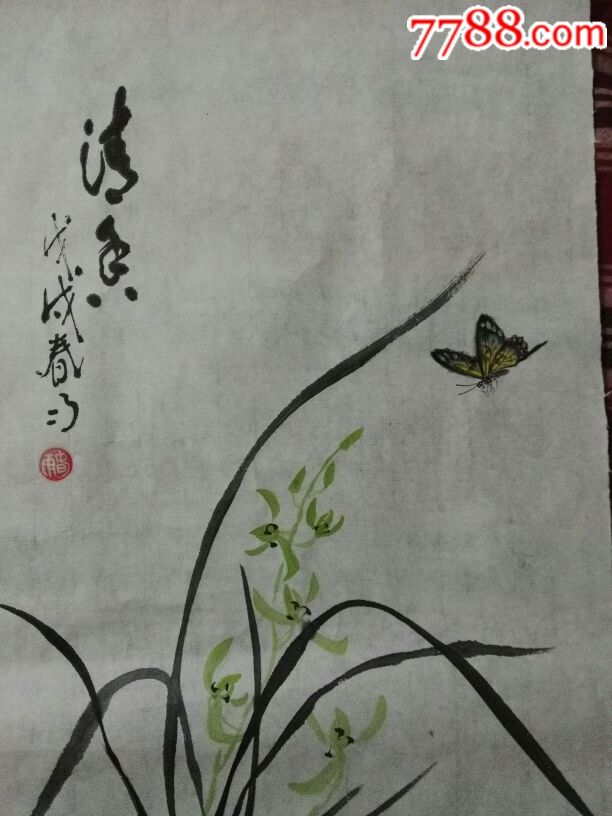 7788.com
清香
戊戌春月